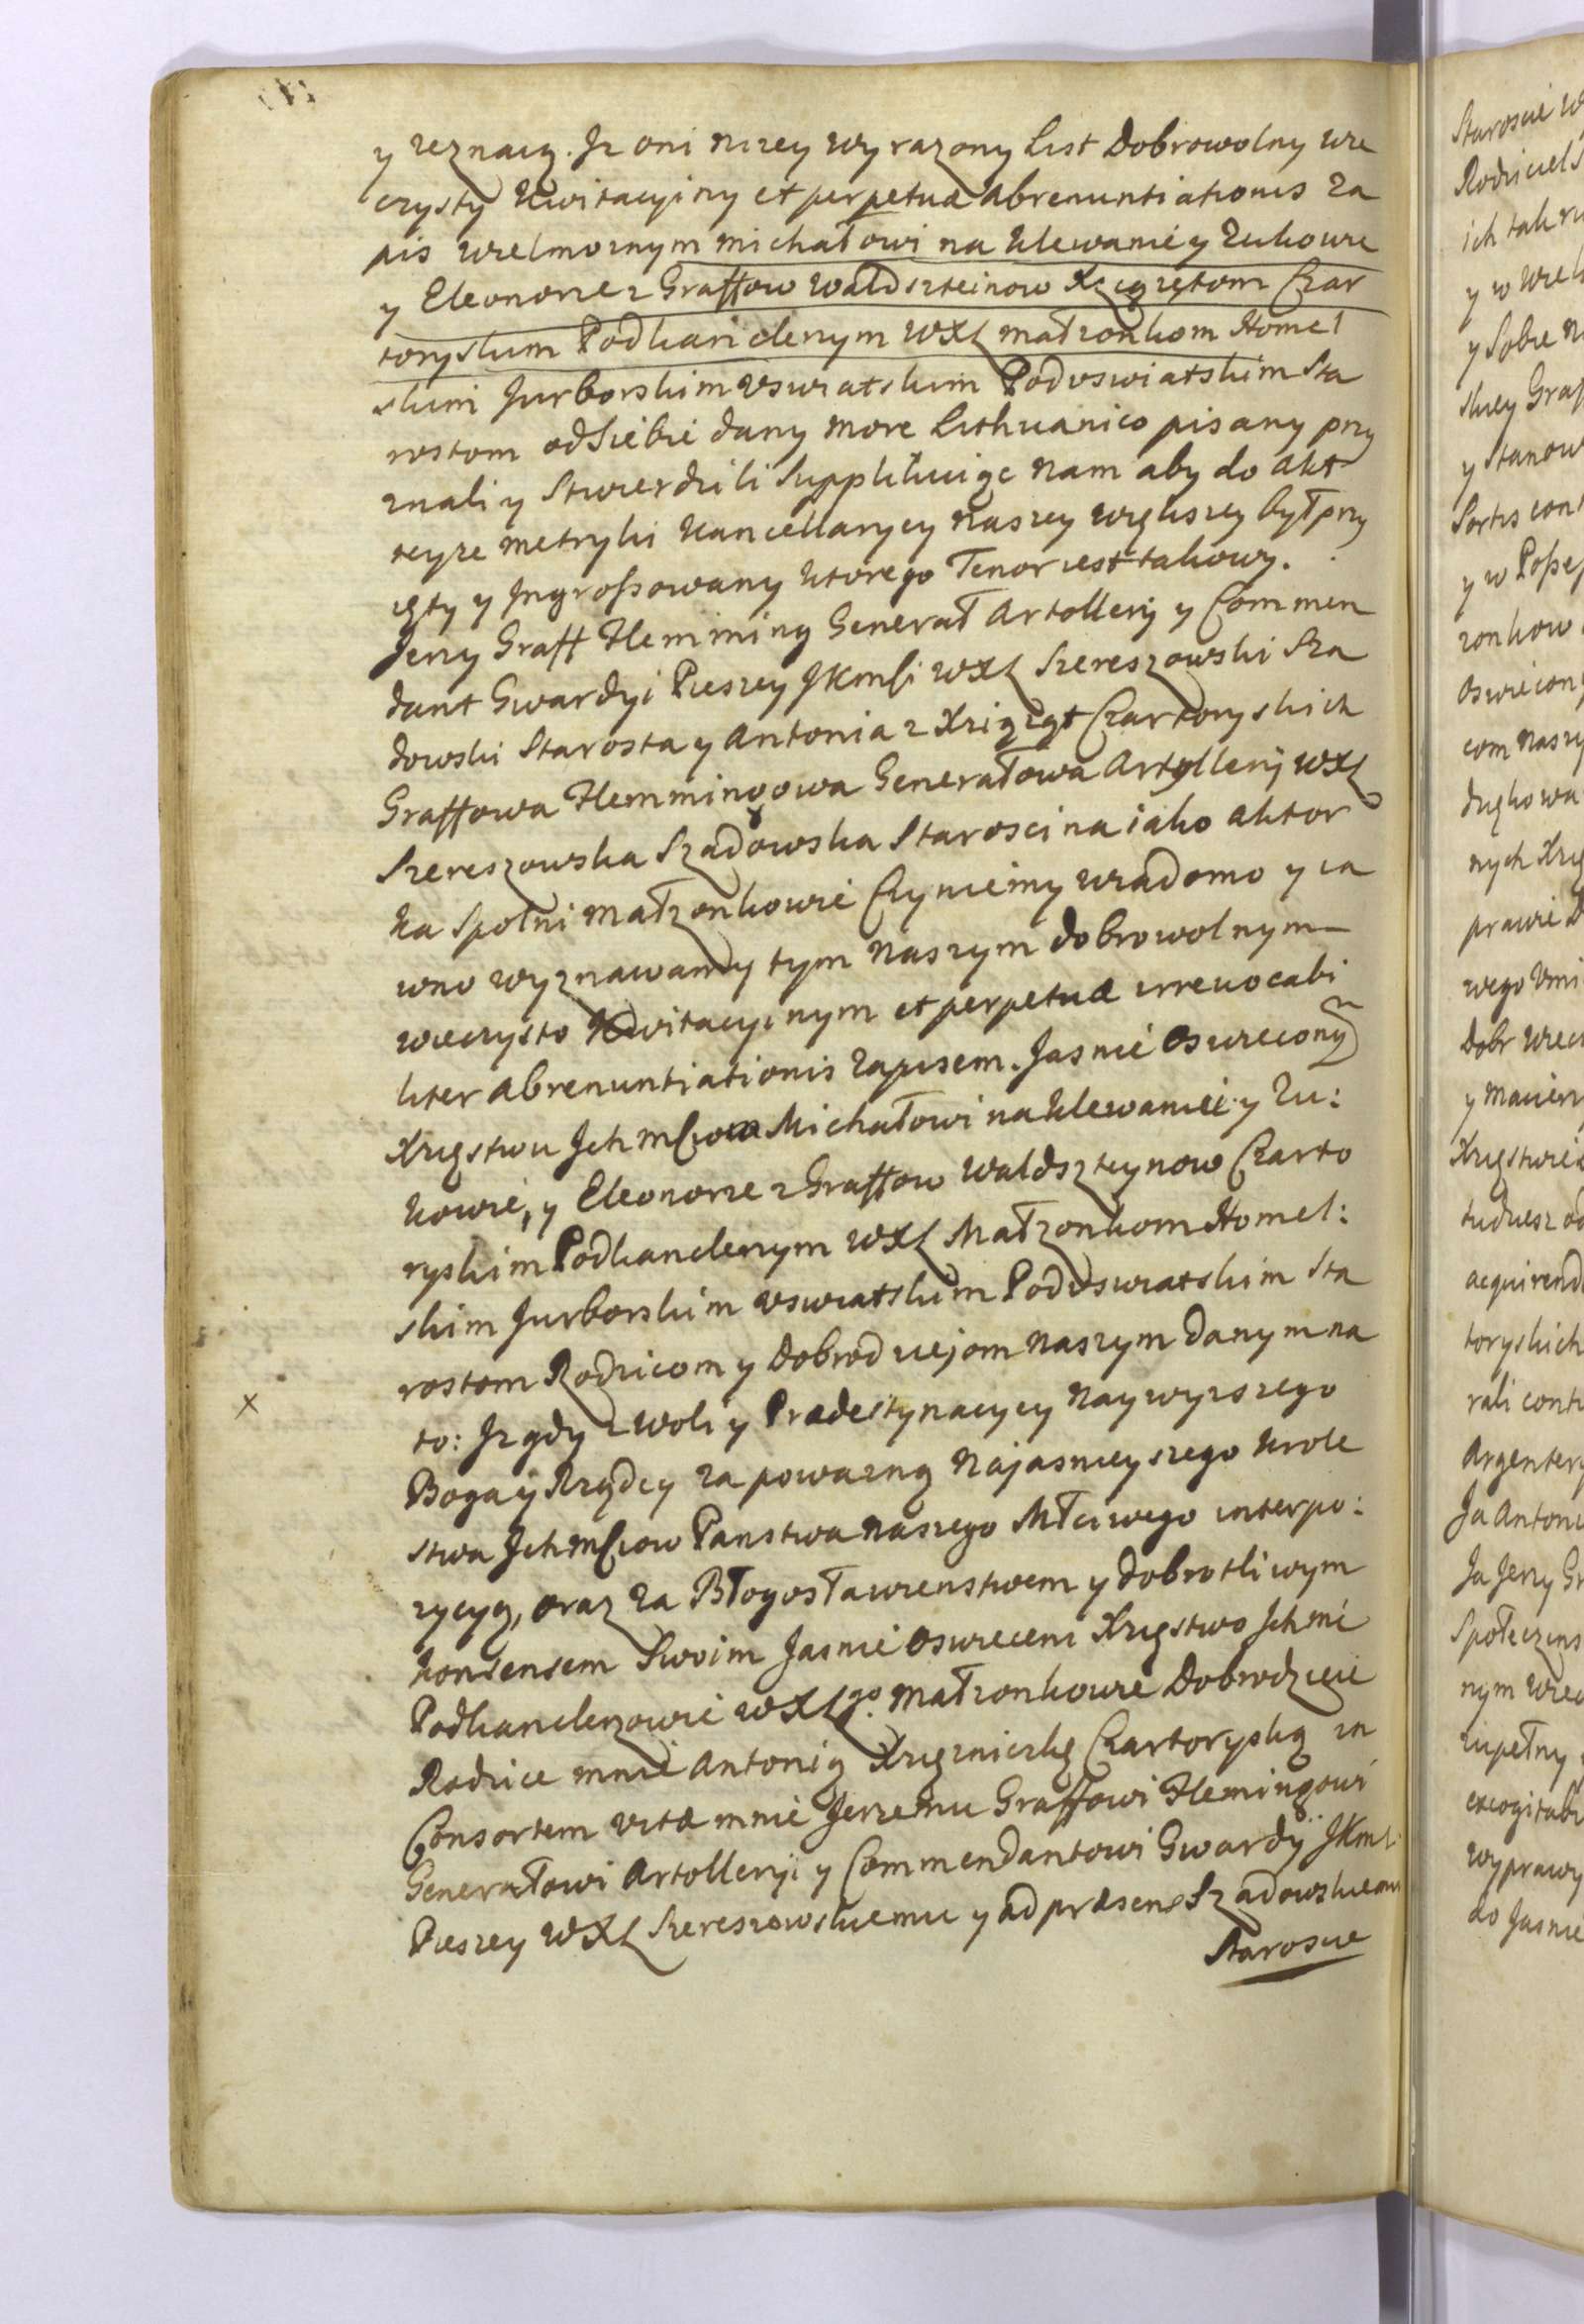 y zeznaią. Iz oni nizey wyrazony List Dobrowolny wie
czysty Kwitacyiny et perpetuæ Abrenuntiationis Za
pis wielmoznym Michałowi na Klewanie y Zukowie
y Eleonorze z Graffow Waldszteinow Xciązętom Czar
toryskim Podkanclerzym WXL małzonkom Homel
skim Jurborskim Uswiatskim Poduswiatskim Sta
rostom od Siebie dany more Lithuanico pisany przy
znali y Stwierdzili Supplikuiąc Nam aby do Akt
teyze metryki Kancellaryey Naszey większey był przy
ięty y Ingrossowany ktorego Tenor iest takowy.
Jerzy Graff Flemming Generał Artollerij y Commen
dant Gwardyi Pieszey JKmsci WXL Szereszowski Sza
dowski Starosta y Antonia z Xziąząt Czartoryskich
Graffowa Flemmingowa Generałowa Artylleryi WXL
Szereszowska Szadowska Staroscina iako Aktor
ka Społni małzonkowie Czyniemy wiadomo y ia
wno wyznawamy tym Naszym dobrowolnym
wieczysto Kwitacyinym et perpetuæ irreuocabi
liter Abrenuntiationis Zapisem. Jasnie Oswieconym
Xięstwu Ichmsciom Michałowi na Klewanie y Zu:
kowie, y Eleonorze z Graffow Waldszteynow Czarto
ryskim Podkanclerzym WXL Małzonkom Homel:
skim Jurborskim Uswiatskim Poduswiatskim Sta
rostom Rodzicom y Dobrodziejom Naszym Danym na
to: Iz gdy z woli y Prædestynacyey Naywyzszego
Boga y Rządcy za powazną Najasnieyszego Krole
stwa Ichmsciow Panstwa Naszego Młciwego interpo:
zycyą, oraz za Błogosławienstwem y dobrotliwym
konsensem Swoim Jasnie Oswieceni Xięstwo Ichmć
Podkanclerzowie WXLgo. Małzonkowie Dobrodzieie
Rodzice mnie Antonią Xięzniczkę Czartoryską in
Consortem vitæ mnie Jerzemu Graffowi Flemingowi
Generałowi Artolleryi y Commendantowi Gwardyi JKmsci
Pieszey WXL Szereszowskiemu y ad præsens Szadowskiemu
Staroscie